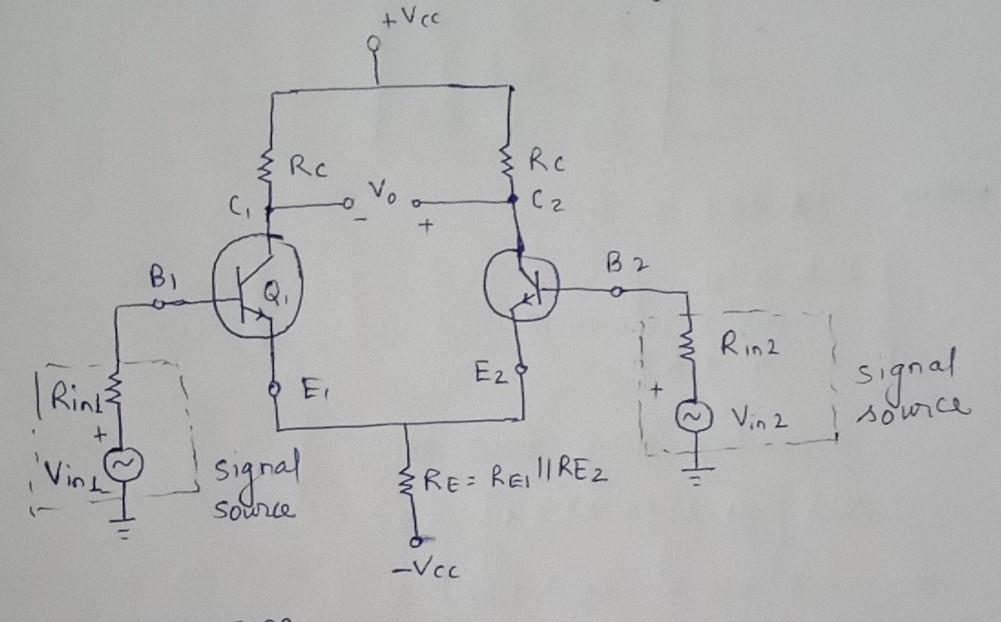 +Vcc
Rc
Rc
C1
Vo
C2
-
+
B1
Q1
B2
E1
E2
Rin1
+
Vin1
signal
source
RE = RE1 || RE2
-Vcc
Rin2
+
Vin2
signal
source